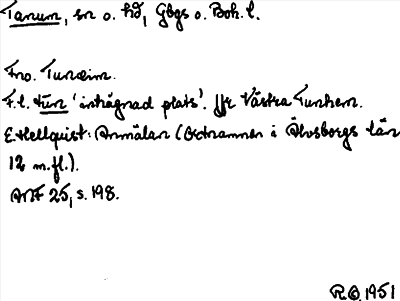 Tanum, sn o. hd, Gbgs o. Boh. l.
Fno. Tuneim.
F.l. tún 'inhägnad plats'. Jfr Västra Tunhem.
E. Hellquist: Anmälan (Ortnamnen i Älvsborgs län
12 m.fl.).
ANF 25, s. 198.
R 1951